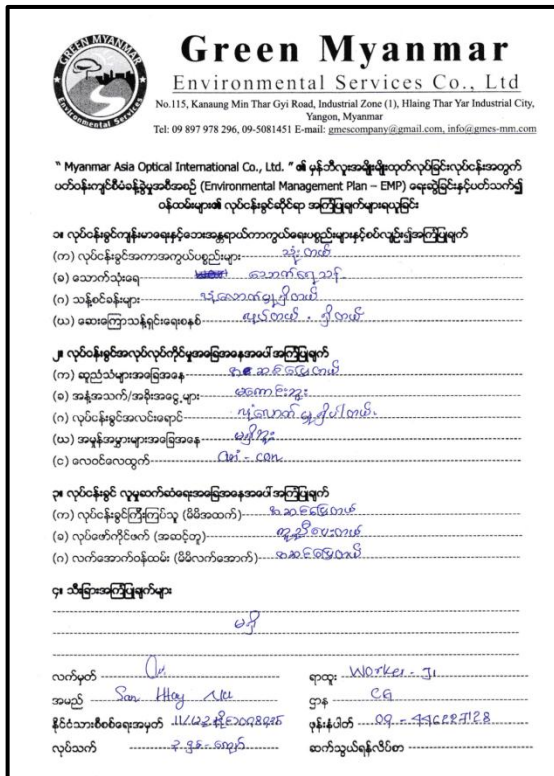 GREEN MYANMAR
Environmental Services
Green Myanmar
Environmental Services Co., Ltd
No.115, Kanaung Min Thar Gyi Road, Industrial Zone (1), Hlaing Thar Yar Industrial City,
Yangon, Myanmar
Tel: 09 897 978 296, 09-5081451 E-mail: gmescompany@gmail.com, info@gmes-mm.com
" Myanmar Asia Optical International Co., Ltd. " ၏ မှန်ဘီလူးအမျိုးမျိုးထုတ်လုပ်ခြင်းလုပ်ငန်းအတွက်
ပတ်ဝန်းကျင်စီမံခန့်ခွဲမှုအစီအစဉ် (Environmental Management Plan – EMP) ရေးဆွဲခြင်းနှင့်ပတ်သက်၍
ဝန်ထမ်းများ၏ လုပ်ငန်းခွင်ဆိုင်ရာ အကြံပြုချက်များရယူခြင်း
၁။ လုပ်ငန်းခွင်ကျန်းမာရေးနှင့်ဘေးအန္တရာယ်ကာကွယ်ရေးပစ္စည်းများနှင့်စပ်လျဉ်း၍အကြံပြုချက်
(က) လုပ်ငန်းခွင်အကာအကွယ်ပစ္စည်းများ သုံးတယ်
(ခ) သောက်သုံးရေ သောက်ရေသန့်
(ဂ) သန့်စင်ခန်းများ လုံလောက်မှုရှိတယ်
(ဃ) ဆေးကြောသန့်ရှင်းရေးစနစ် ရှိတယ်
၂။ လုပ်ငန်းခွင်အလုပ်လုပ်ကိုင်မှုအခြေအနေအပေါ် အကြံပြုချက်
(က) ဆူညံသံများအခြေအနေ အဆင်ပြေတယ်
(ခ) အနံ့အသက်/အခိုးအငွေ့များ မကောင်းဘူး
(ဂ) လုပ်ငန်းခွင်အလင်းရောင် လုံလောက်မှုရှိပါတယ်
(ဃ) အမှုန်အမွှားများအခြေအနေ မရှိဘူး
(င) လေဝင်လေထွက် Air - con
၃။ လုပ်ငန်းခွင် လူမှုဆက်ဆံရေးအခြေအနေအပေါ် အကြံပြုချက်
(က) လုပ်ငန်းခွင်ကြီးကြပ်သူ (မိမိအထက်) အဆင်ပြေတယ်
(ခ) လုပ်ဖော်ကိုင်ဖက် (အဆင့်တူ) ကူညီပေးတယ်
(ဂ) လက်အောက်ဝန်ထမ်း (မိမိလက်အောက်) အဆင်ပြေတယ်
၄။ သီးခြားအကြံပြုချက်များ
မရှိ
လက်မှတ် ရာထူး Worker - J1
အမည် San Htay ဌာန CG
နိုင်ငံသားစီစစ်ရေးအမှတ် ဖုန်းနံပါတ် 09 -
လုပ်သက် ဆက်သွယ်ရန်လိပ်စာ